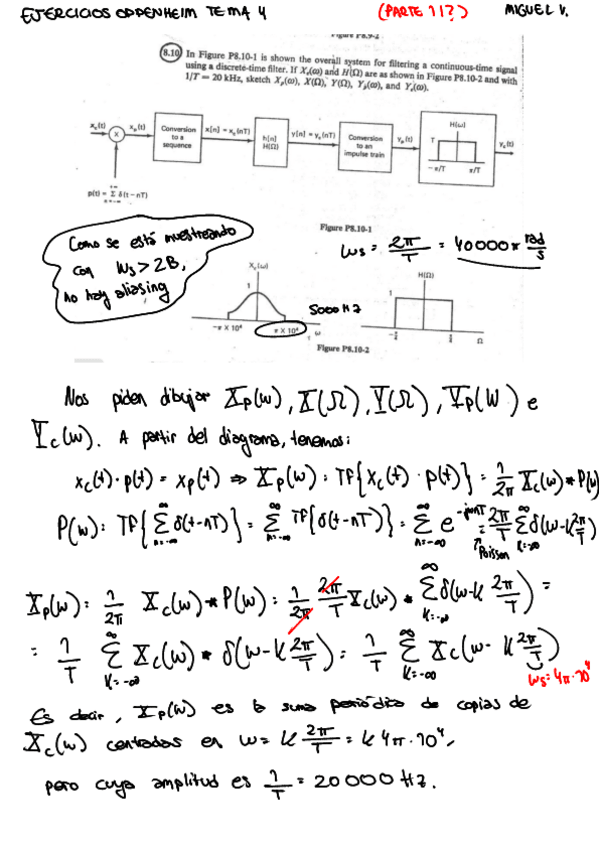 EJERCICIOS OPPENHEIM TEMA 4 (PARTE 1!?) MIGUEL V.
8.10 In Figure P8.10-1 is shown the overall system for filtering a continuous-time signal
using a discrete-time filter. If Xc(ω) and H(Ω) are as shown in Figure P8.10-2 and with
1/T = 20 kHz, sketch Xp(ω), X(Ω), Y(Ω), Yp(ω), and Yc(ω).
xc(t) xp(t) Conversion to a sequence x[n] = xc(nT) h[n] H(Ω) y[n] = yc(nT) Conversion to an impulse train yp(t) H(ω) T -π/T π/T yc(t)
p(t) = Σ δ(t-nT)
n=-∞
Figure P8.10-1
Como se está muestreando
con ws > 2B,
no hay aliasing
ws = 2π/T = 40000π rad/s
Xc(ω) 1 -π X 10⁴ π X 10⁴ ω
5000 Hz
H(Ω) 1 Ω
Figure P8.10-2
Nos piden dibujar Xp(w), X(Ω), Y(Ω), Yp(w) e
Yc(w). A partir del diagrama, tenemos:
xc(t)·p(t) = xp(t) ⇒ Xp(w) = TF{xc(t) · p(t)} = 1/2π Xc(w) * P(w)
P(w) = TF{Σ n=-∞ ∞ δ(t-nT)} = Σ n=-∞ ∞ TF{δ(t-nT)} = Σ n=-∞ ∞ e^-jwnT = 2π/T Σ δ(w-k 2π/T)
↑ Poisson
Xp(w) = 1/2π Xc(w) * P(w) = 1/2π 2π/T Xc(w) * Σ k=-∞ ∞ δ(w-k 2π/T) =
= 1/T Σ k=-∞ ∞ Xc(w) * δ(w-k 2π/T) = 1/T Σ k=-∞ ∞ Xc(w- k 2π/T)
ws = 4π·10⁴
Es decir, Xp(w) es la suma periódica de copias de
Xc(w) centradas en w = k 2π/T = k 4π·10⁴,
pero cuya amplitud es 1/T = 20000 Hz.